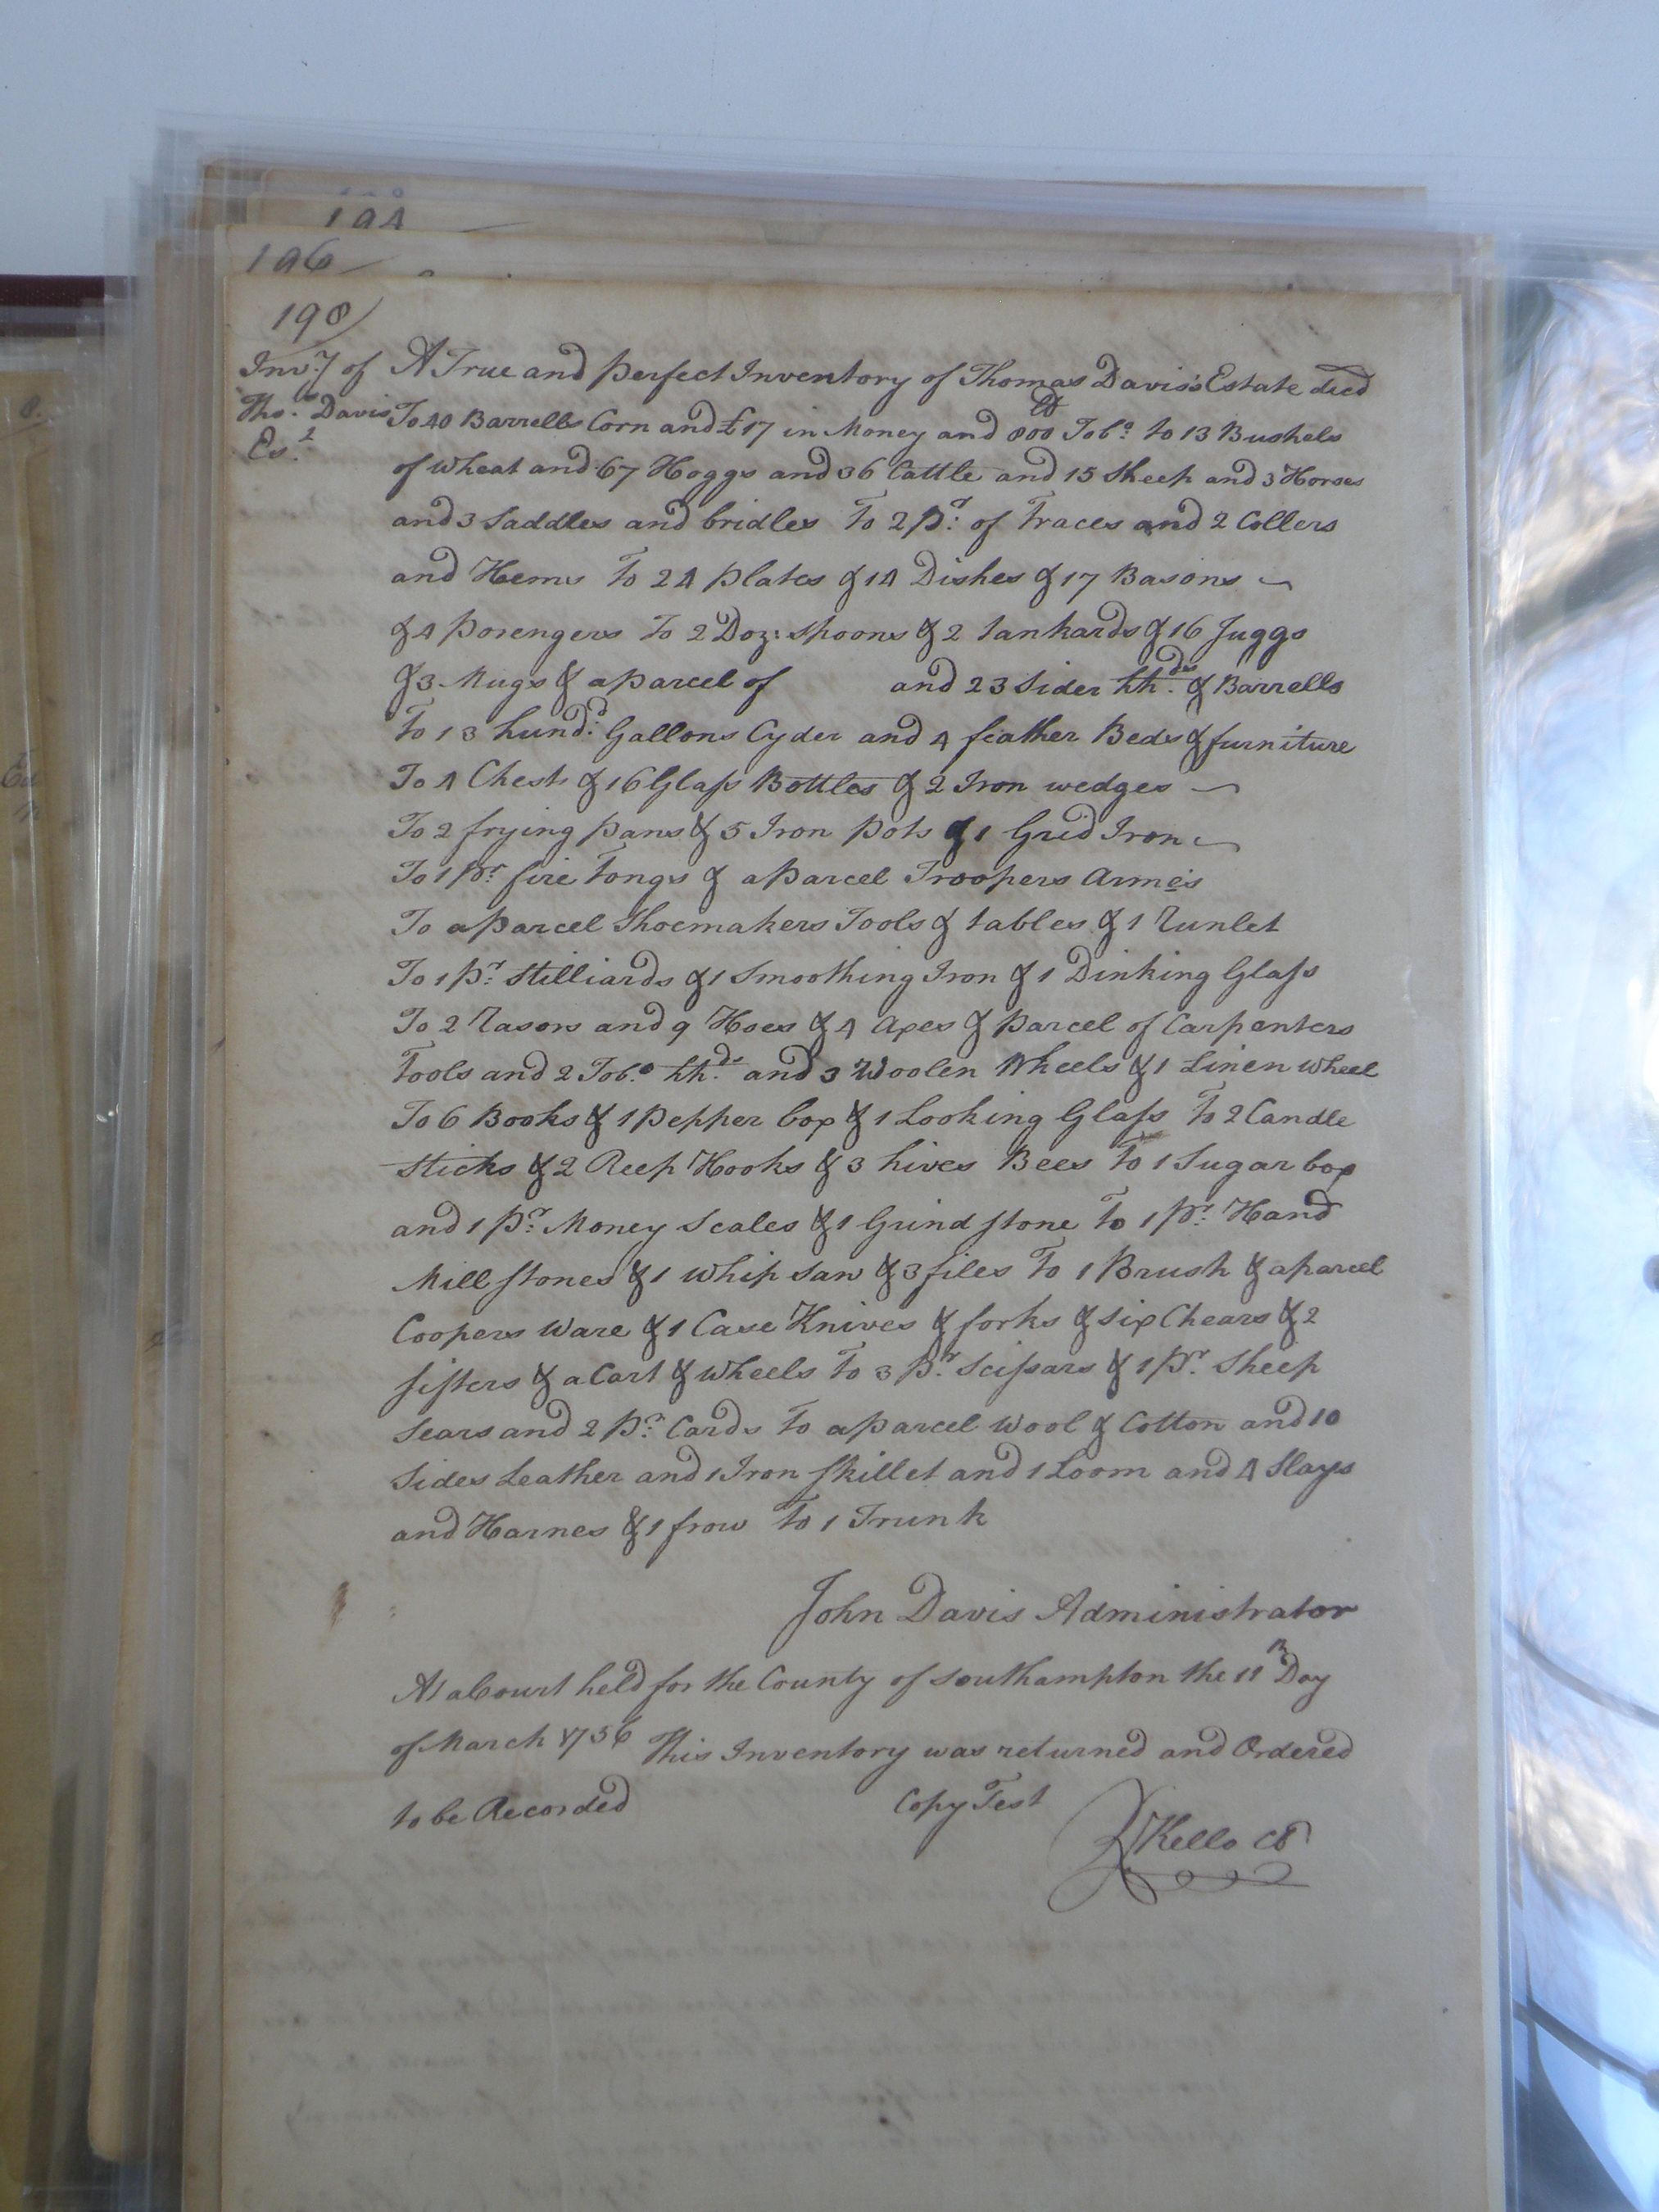 194
196
198
Inv.y of A True and perfect Inventory of Thomas Davis's Estate decd
Tho.s Davis To 40 Barrells Corn and £17 in Money and 800 lb Tob.o to 13 Bushels
Es.t of wheat and 67 Hoggs and 36 Cattle and 15 Sheep and 3 Horses
and 3 Saddles and bridles To 2 p.r of Traces and 2 Collers
and Hems To 24 plates & 14 Dishes & 17 Basons
& 4 porengers To 2 Doz: Spoons & 2 tankards & 16 Juggs
& 3 Mugs & a parcel of and 23 Sider hh.ds & Barrells
To 13 hund.d Gallons Cyder and 4 feather Beds & furniture
To 4 Chests & 16 Glass Bottles & 2 Iron wedges
To 2 frying pans & 5 Iron pots & 1 Grid Iron
To 1 p.r fire Tongs & a parcel Troopers Armes
To a parcel Shoemakers Tools & tables & 1 Runlet
To 1 p.r Stilliards & 1 Smoothing Iron & 1 Dinking Glass
To 2 Rasors and 9 Hoes & 4 Axes & parcel of Carpenters
Tools and 2 Tob.o hh.ds and 3 Woolen Wheels & 1 Linen wheel
To 6 Books & 1 pepper box & 1 Looking Glass To 2 Candle
Sticks & 2 Reep Hooks & 3 hives Bees To 1 Sugar box
and 1 p.r Money Scales & 1 Grind stone To 1 p.r Hand
Mill stones & 1 whip saw & 3 files To 1 Brush & a parcel
Coopers Ware & 1 Case Knives & forks & six Chears & 2
sifters & a Cart & wheels To 3 p.r Scissars & 1 p.r Sheep
Sears and 2 p.r Cards To a parcel Wool & Cotton and 10
Sides Leather and 1 Iron skillet and 1 Loom and 4 Slays
and Harnes & 1 frow To 1 Trunk
John Davis Administrator
At a Court held for the County of Southampton the 11th Day
of March 1756 This Inventory was returned and Ordered
to be Recorded Copy Test
Kello